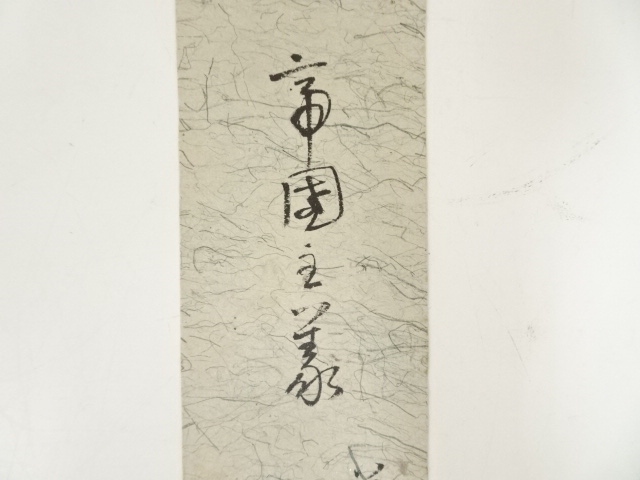 帝国主義